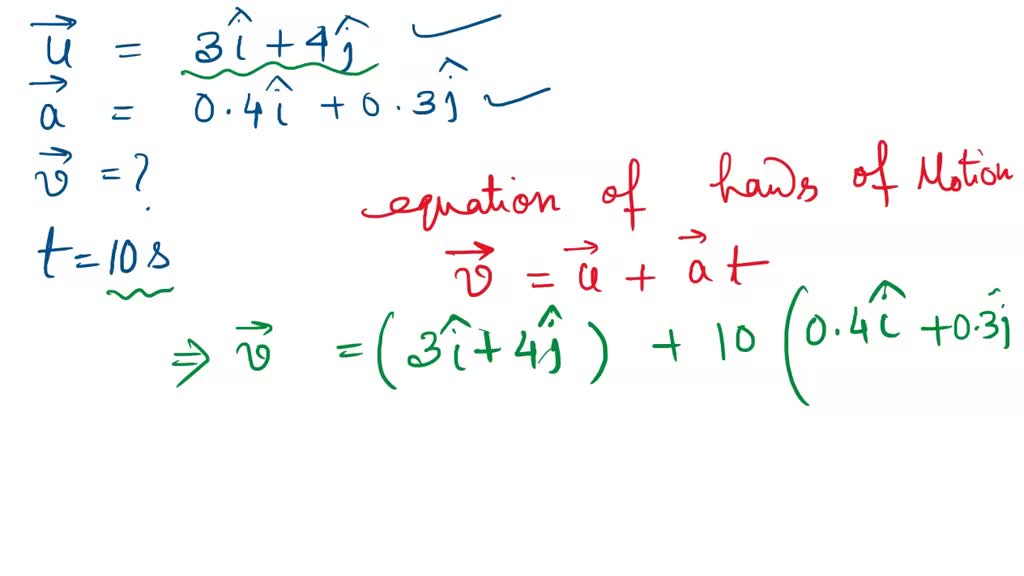 u⃗ = 3î + 4ĵ ✓
a⃗ = 0.4î + 0.3ĵ ✓
v⃗ = ?
t = 10 s
equation of Laws of Motion
v⃗ = u⃗ + a⃗ t
⇒ v⃗ = (3î + 4ĵ) + 10 (0.4î + 0.3ĵ